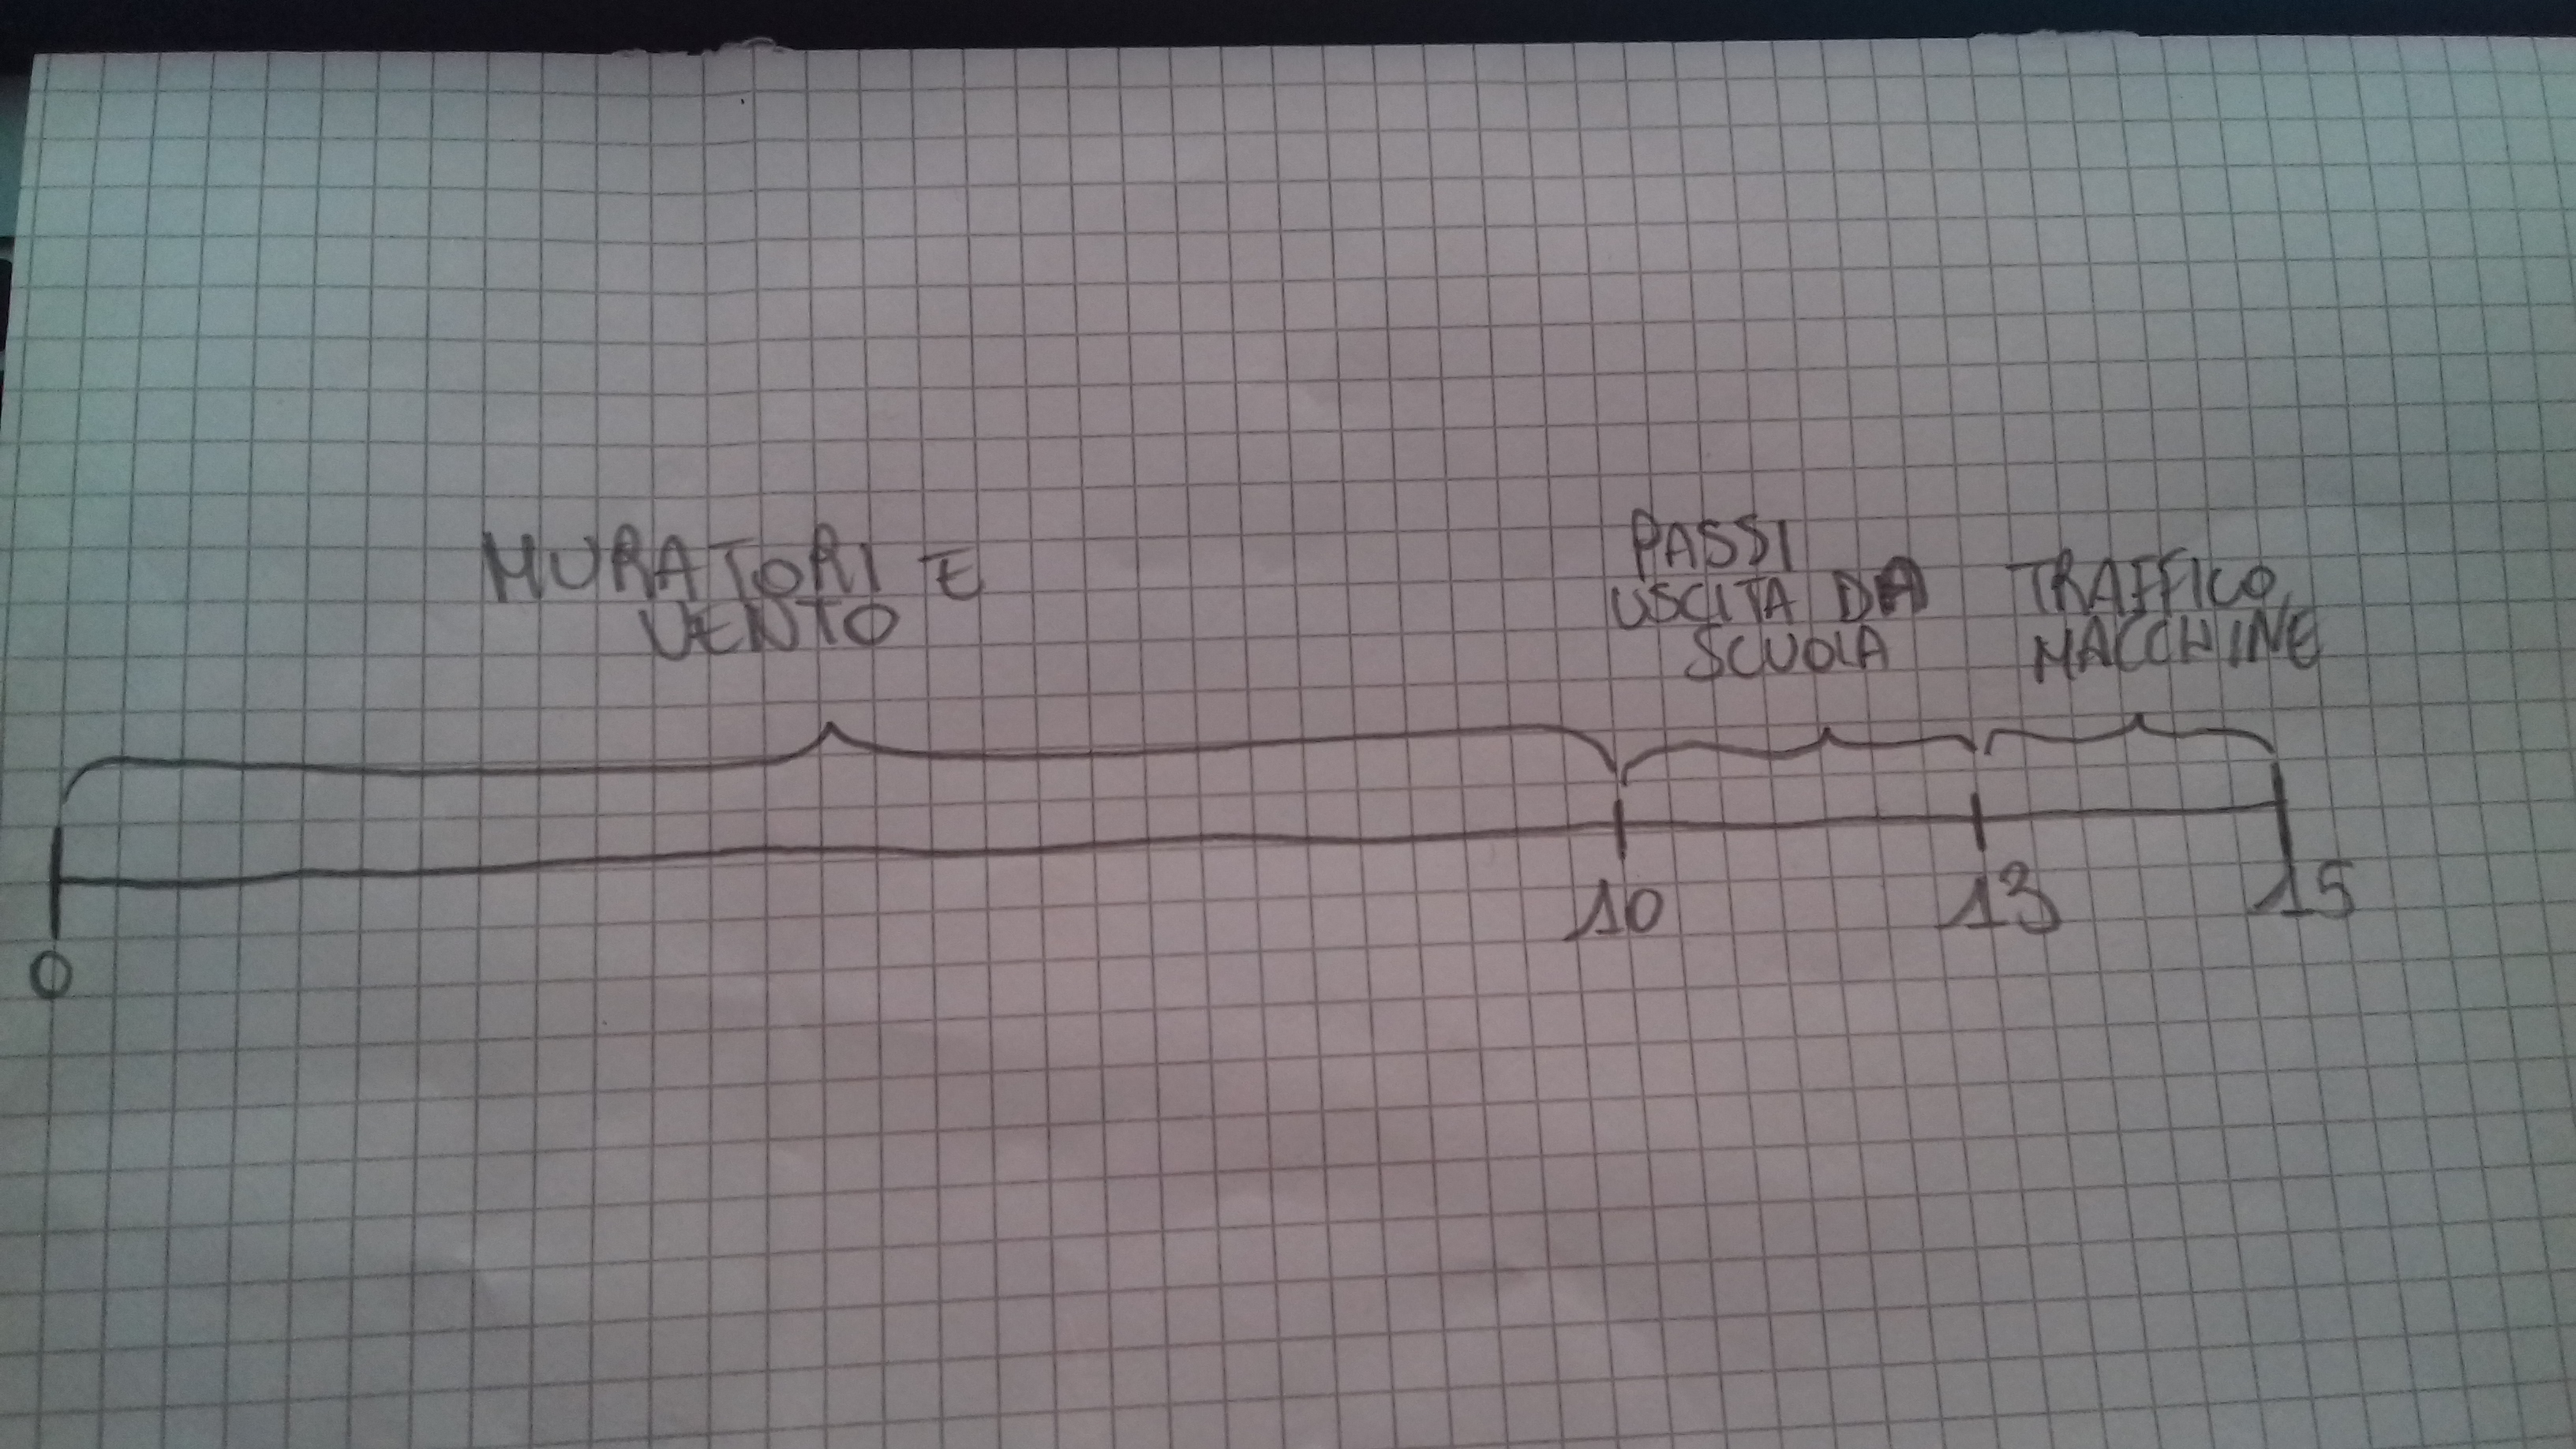 MURATORI E
VENTO
PASSI
USCITA DA
SCUOLA
TRAFFICO
MACCHINE
0
10
13
15